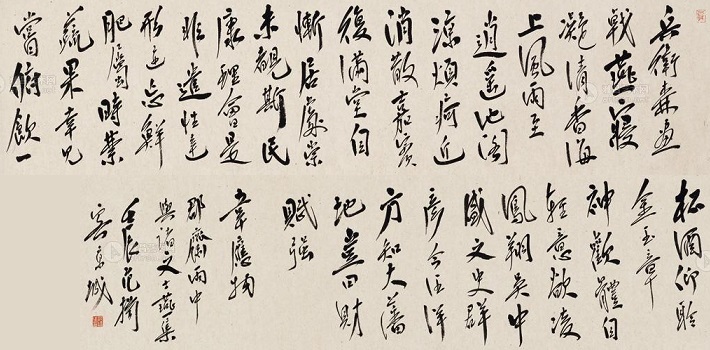 兵衛森画
戟燕寢
凝清香海
上風雨至
逍遥池阁
凉煩疴近
消散嘉賓
復滿堂自
慚居處崇
未覩斯民
康理會是
非遣性達
形迹忘鮮
肥属時禁
蔬果幸見
嘗俯飲一
杯酒仰聆
金玉章
神歡體自
輕意欲凌
風翔吳中
盛文史群
彦今汪洋
方知大藩
地豈曰財
賦强
韋應物
郡齋雨中
與諸文士燕集
壬辰范揚
客京城